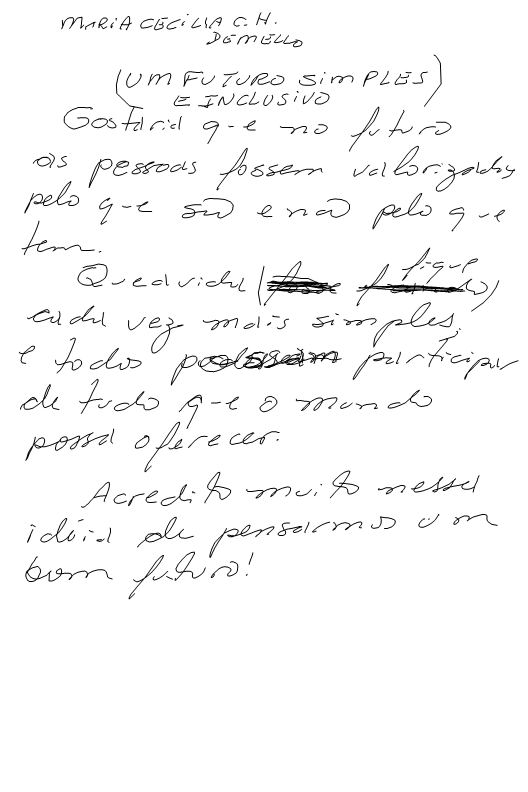 MARIA CECILIA C. H.
DEMELLO
(UM FUTURO SIMPLES
E INCLUSIVO)
Gostaria que no futuro
as pessoas fossem valorizadas
pelo que são e não pelo que
tem.
Que a vida ( fique )
cada vez mais simples,
e todos possam participar
de tudo que o mundo
possa oferecer.
Acredito muito nessa
idéia de pensarmos um
bom futuro!